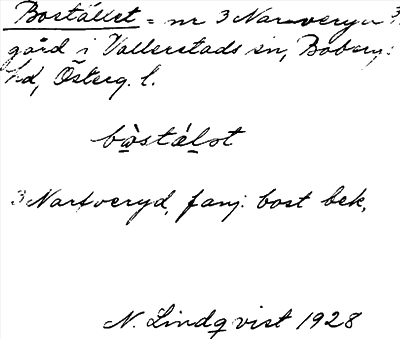 Bostället = nr 3 Narveryd 3/
gård i Vallerstads sn, Boberg:
hd, Österg. l.
bòstálot
3 Narfveryd, fanj: bost bek,
N. Lindqvist 1928